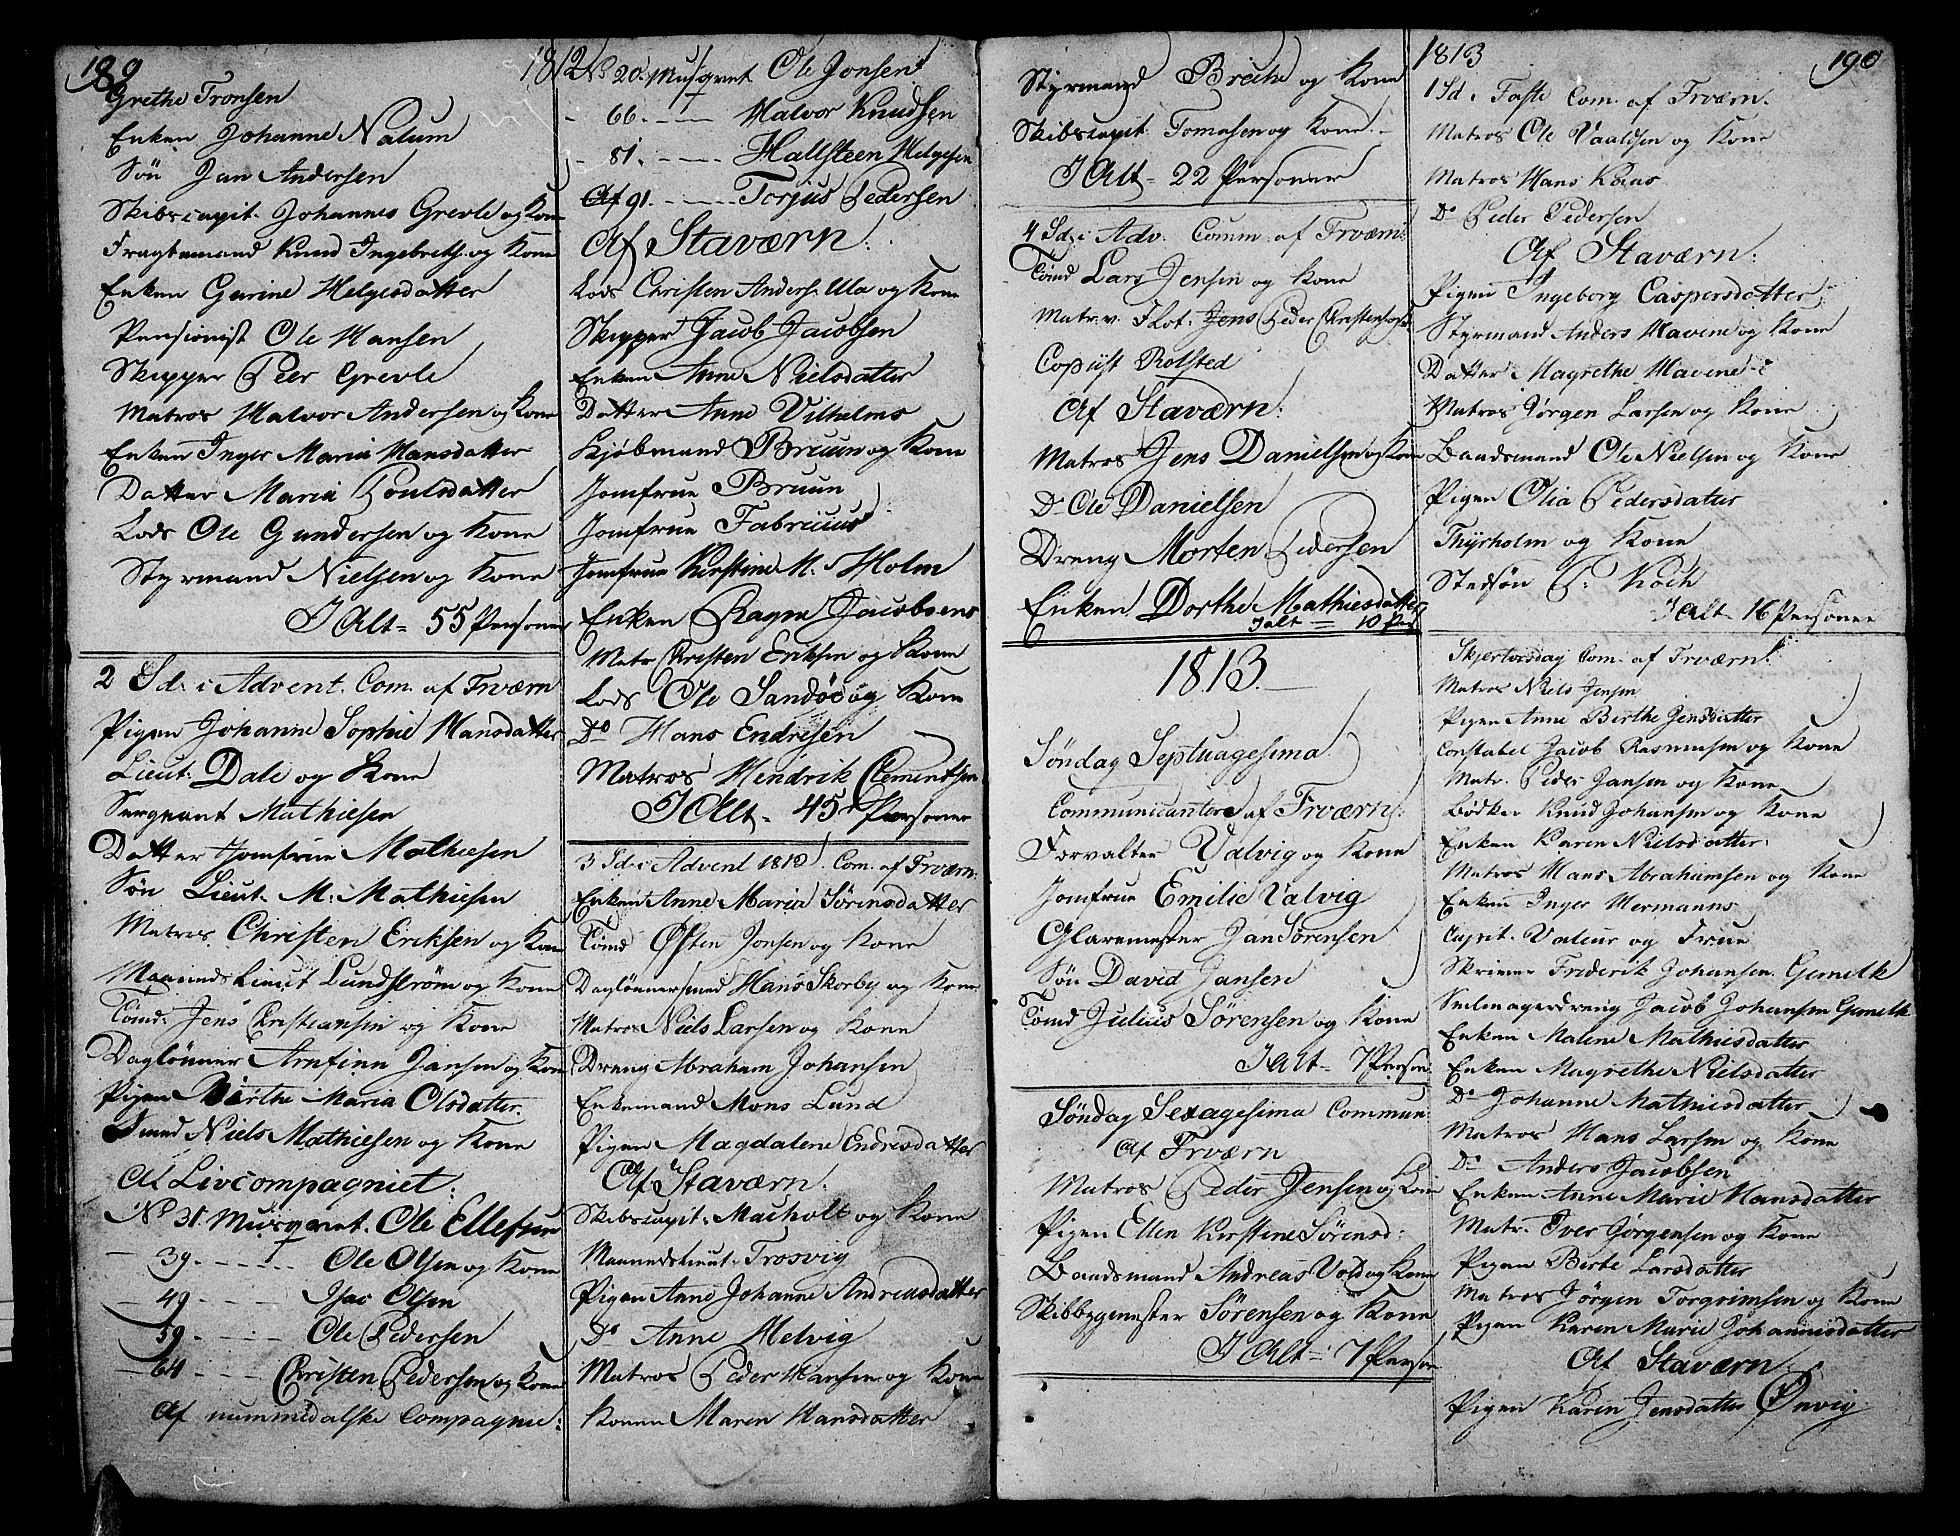 189
1812
Grethe Tronsen
Enken Johanne Nalum
Søn Jan Andersen
Skibscapit. Johannes Grevle og Kone
Fragtemand Knud Ingebreths. og Kone
Enken Gurine Helgesdatter
Pensionist Ole Hansen
Skipper Peer Grevle
Matros Halvor Andersen og Kone
Enken Inger Maria Hansdatter
Datter Maria Poulsdatter
Lods Ole Gundersen og Kone
Styrmand Nielsen og Kone
I Alt = 55 Personer
2 Sd: i Advent. Com. af Frværn
Pigen Johanne Sophie Hansdatter
Lieut: Dale og Kone
Sergeant Mathiesen
Datter Jomfrue Mathiesen
Søn Lieut. M: Mathiesen
Matros Christen Eriksen og Kone
Maaneds Lieut Lundstrøm og Kone
Tømd: Jens Christiansen og Kone
Daglønner Arnfinn Jansen og Kone
Pigen Birthe Maria Olsdatter
Niels Mathiesen og Kone
Af Livcompagniet:
No 31. Musqvet. Ole Ellefsen
39. Ole Olsen og Kone
49. Isac Olsen
59. Ole Pedersen
64. Christen Pedersen og Kone
Af nummedalske Compagnie:
No 20. Musqvet Ole Jonsen
- 66. Halvor Knudsen
- 81. Hallsteen Helgesen
Af 91. Torjus Pedersen
Af Staværn:
Lods Christen Anders. Ula og Kone
Skipper Jacob Jacobsen
Enken Anne Nielsdatter
Datter Anne Vilhelms
Kjøbmand Bruun og Kone
Jomfrue Bruun
Jomfrue Fabricius
Jomfrue Kirstine M: Holm
Enken Ragne Jacobsens
Matr Christen Eriksen og Kone
Lods Ole Sandøe og Kone
Do Hans Endresen
Matros Hendrik Clementsen
I Alt = 45 Personer
3 Sd: i Advent 1812. Com. af Frværn:
Enken Anne Maria Sørensdatter
Tømd Østen Jonsen og Kone
Dagløunersmed Hans Skorby og Kone
Matros Niels Larsen og Kone
Dreng Abraham Johansen
Enkemand Mons Lund
Pigen Magdalene Endresdatter
Af Staværn:
Skibscapit: Macholt og Kone
Maanedslieut. Trosvig
Pigen Anne Johanne Andreasdatter
Do Anne Helvig
Matros Peder Hansen og Kone
Konen Maren Hansdatter
Styrmand Brethe og Kone
Skibscapit. Tomesen og Kone
I Alt = 22 Personer
4 Sd: i Adv. Comm: af Frværn:
Tømd Lars Jensen og Kone
Matr. v. Flot: Jens Peder Christenson
Copiist Rolsted
Af Staværn:
Matros Jens Danielsen og Kone
Do Ole Danielsen
Dreng Morten Pedersen
Enken Dorthe Mathiesdatter
I alt = 10 Pers
1813.
Søndag Septuagesima
Communicantere af Frværn:
Forvalter Valvig og Kone
Jomfrue Emilie Valvig
Glarmester Jan Sørensen
Søn David Jansen
Tømd Julius Sørensen og Kone
I Alt = 7 Person
Søndag Sexagesima Commun:
Af Frværn
Matros Peder Jensen og Kone
Pigen Ellen Kirstine Sørensd:
Baadsmand Andreas Vold og Kone
Skibbygmester Sørensen og Kone
I Alt = 7 Person
1813
190
1 Sd. i Faste Com. af Frværn.
Matros Ole Vaaldsen og Kone
Matros Hans Kaas
Do Peder Pedersen
Af Staværn:
Pigen Ingeborg Caspersdatter
Styrmand Anders Havene og Kone
Datter Magrethe Havene
Matros Jørgen Larsen og Kone
Baadsmand Ole Nielsen og Kone
Pigen Olia Pedersdatter
Thyrholm og Kone
Stedsøn P: Koch
I Alt 16 Personer
Skjertorsdag Com. af Frværn:
Matros Niels Jensen
Pigen Anne Berthe Jensdatter
Constabel Jacob Rasmusen og Kone
Matr. Peder Jansen og Kone
Bødker Knud Johansen og Kone
Enken Karen Nielsdatter:
Matros Hans Abrahamsen og Kone
Enken Inger Hermanns
Capit. Valeur og Frue
Skriver Friderik Johansen Gemelk
Seilmagerdreng Jacob Johansen Gemelk
Enken Malene Mathiesdatter
Enken Magrethe Nielsdatter
Do Johanne Mathiesdatter
Matros Hans Larsen og Kone
Do Anders Jacobsen
Enken Anne Marie Hansdatter
Matr. Iver Jørgensen og Kone
Pigen Birte Larsdatter
Matros Jørgen Torgrimsen og Kone
Pigen Karen Marie Johannesdatter
Af Staværn:
Pigen Karen Jensdatter Ønvig